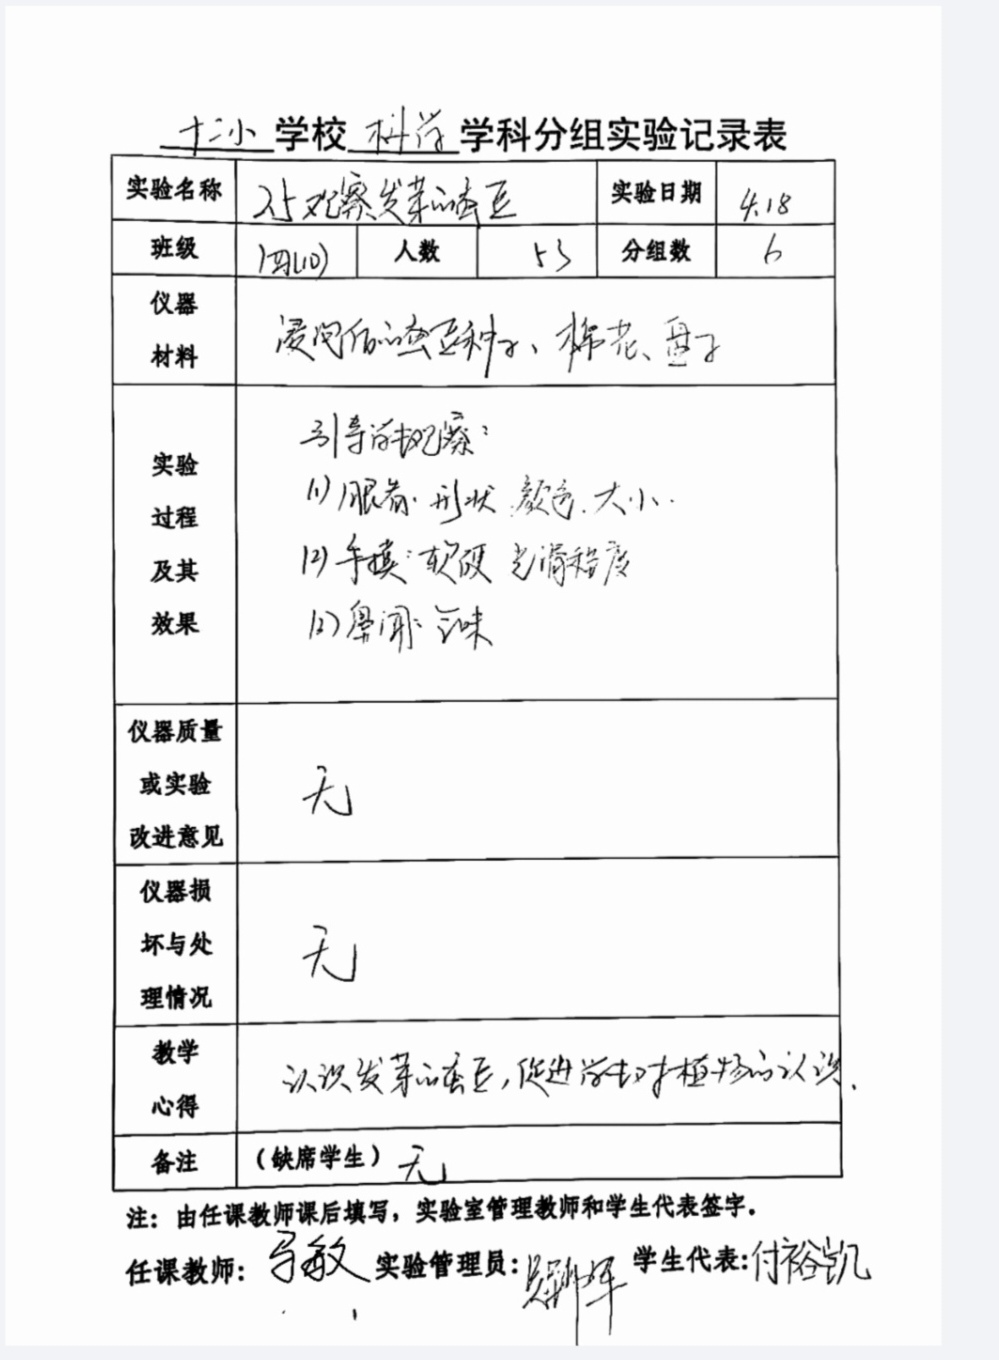 十二小学校科学学科分组实验记录表
实验名称 25观察发芽的蚕豆 实验日期 4.18
班级 四(10) 人数 53 分组数 6
仪器
材料
浸泡后的蚕豆种子、棉花、盘子
实验
过程
及其
效果
引导学生观察:
(1)眼看: 形状.颜色.大小.
(2)手摸: 软硬 光滑程度
(3)鼻闻: 气味
仪器质量
或实验
改进意见
无
仪器损
坏与处
理情况
无
教学
心得
认识发芽的蚕豆,促进学生对植物的认识.
备注 (缺席学生) 无
注：由任课教师课后填写，实验室管理教师和学生代表签字。
任课教师: 马敏 实验管理员: 学生代表: 付裕凯